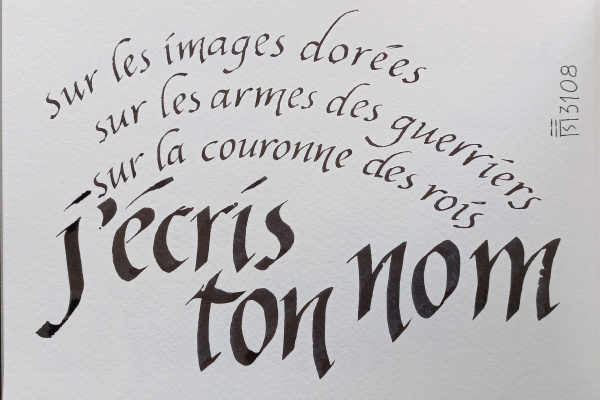 sur les images dorées
sur les armes des guerriers
sur la couronne des rois
j'écris
ton nom
3108